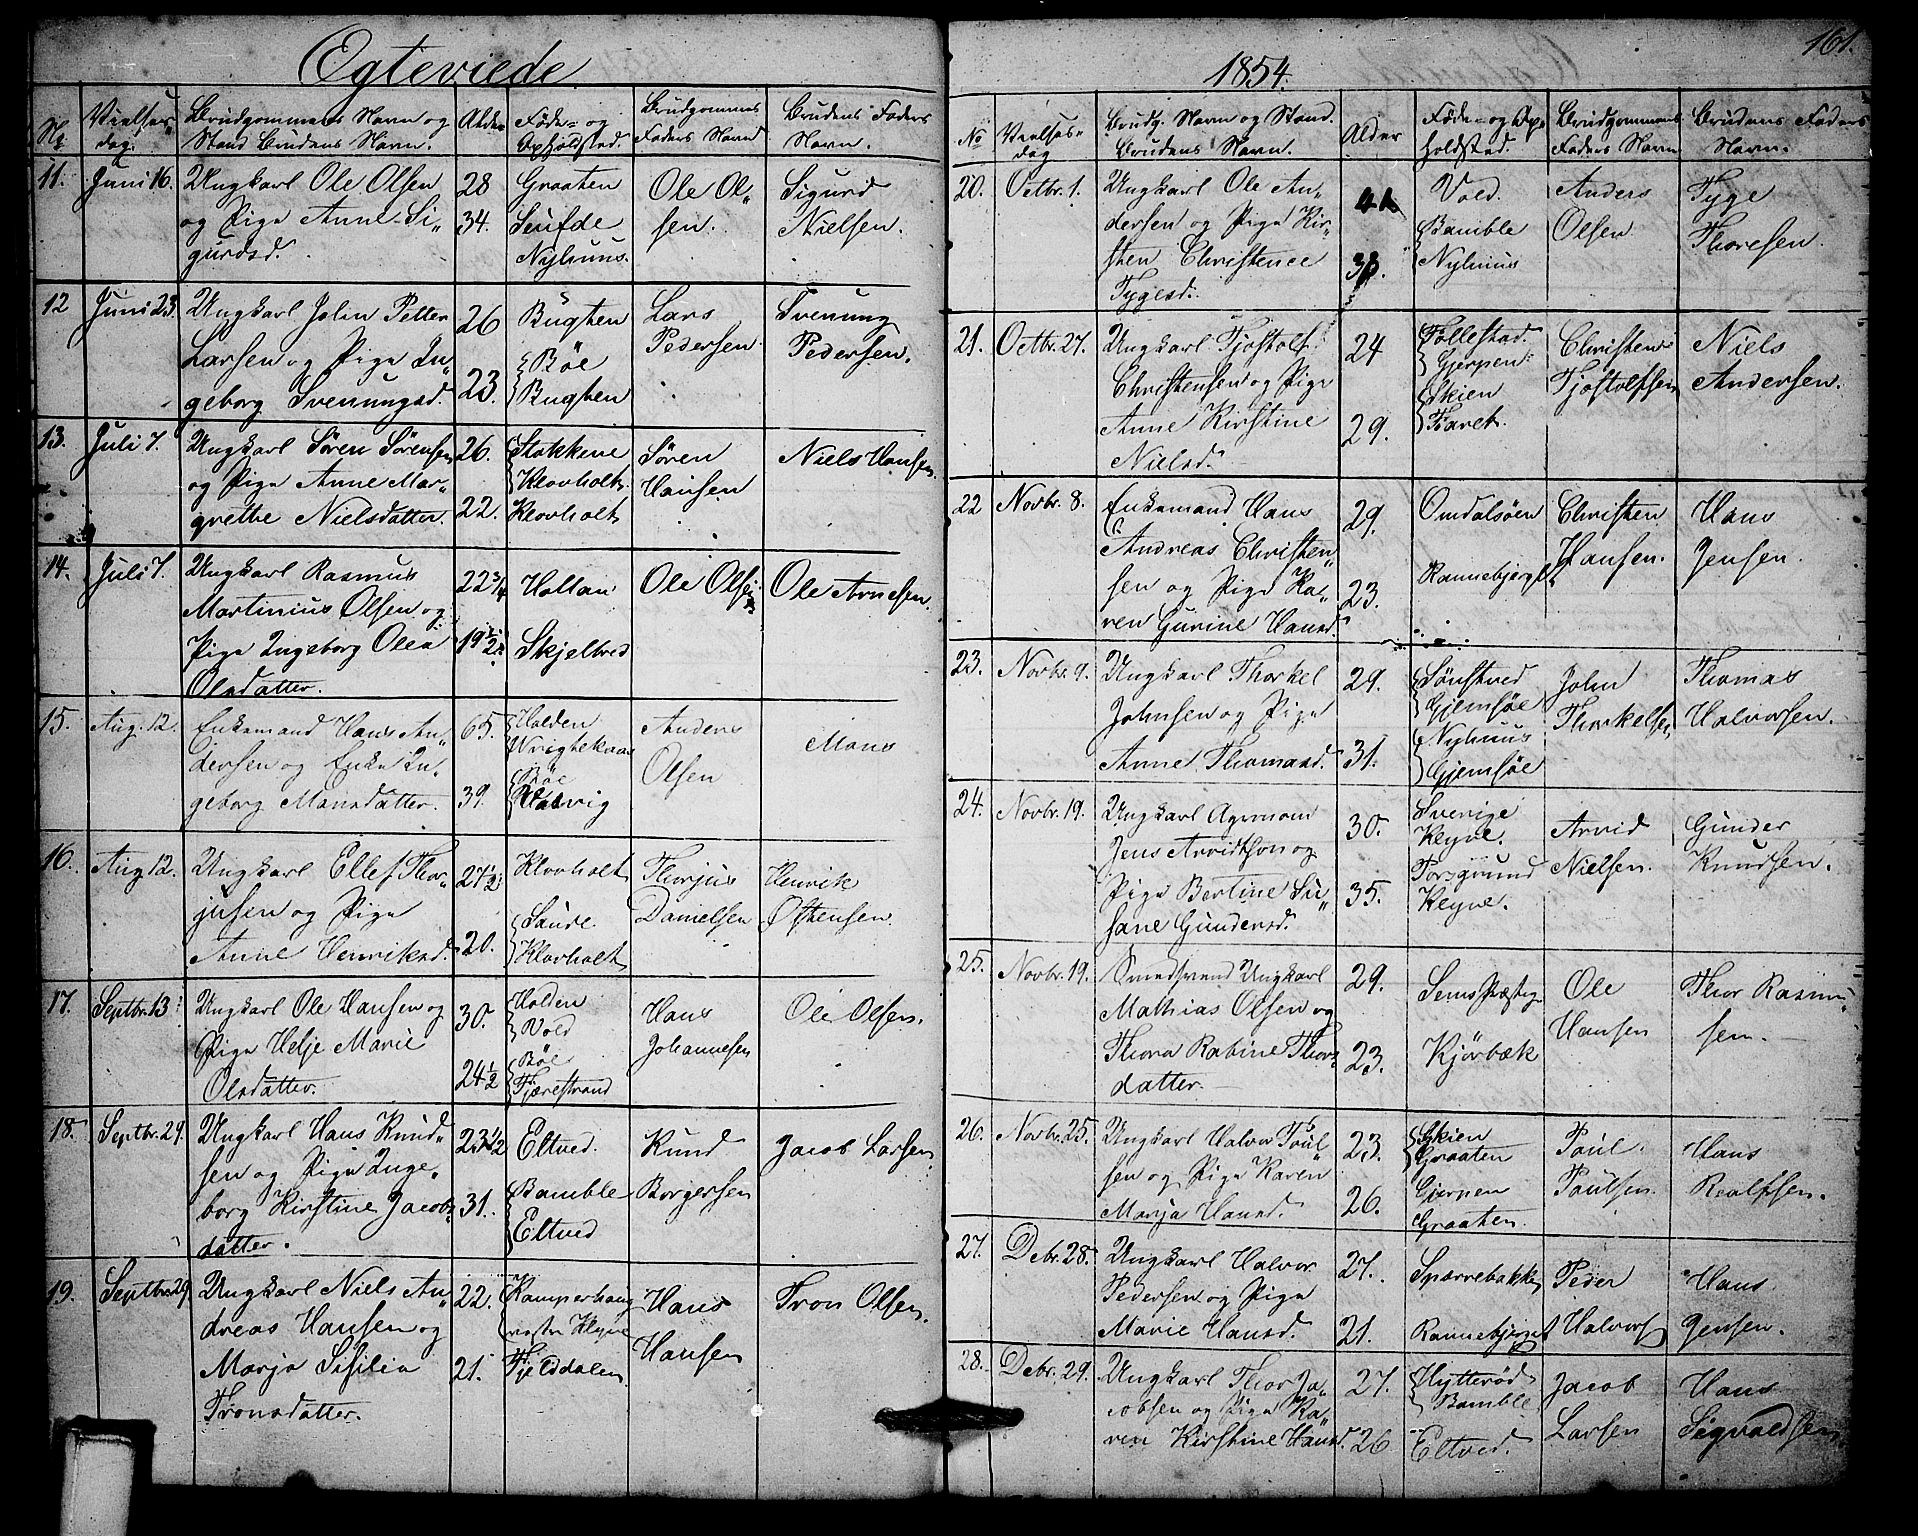 Egteviede
No
Vielses-
dag.
Brudgommens Navn og
Stand Brudens Navn.
Alder
Føde- og
Opholdsted.
Brudgommens
Faders Navn
Brudens Faders
Navn.
11.
Juni 16.
Ungkarl Ole Olsen
og Pige Anne Si„
gurdsd.
28
34.
Graaten
Nyhuus.
Ole Ol„
sen.
Sigurd
Nielsen.
12
Juni 23.
Ungkarl John Petter
Larsen og Pige In„
geborg Svenungsd.
26
23.
Bugten
Bøe
Bugten
Lars
Pedersen
Svenung
Pedersen.
13.
Juli 7.
Ungkarl Søren Sørensen
og Pige Anne Mar„
grethe Nielsdatter.
26.
22.
Stokkene
Klovholt.
Klovholt
Søren
Hansen
Niels Hansen.
14.
Juli 7.
Ungkarl Rasmus
Martinius Olsen og
Pige Ingeborg Olea
Olsdatter.
22 3/4
19 1/2
Holtan
Skjelbred
Ole Olsen
Ole Arnesen.
15.
Aug. 12.
Enkemand Hans An„
dersen og Enke In„
geborg Mansdatter.
65.
39.
Holden
Bøe
Ole Olsen
Anders
Olsen
Mons
16.
Aug 12.
Ungkarl Ellef Thor„
jusen og Pige
Anne Henriksd.
27 1/2
20.
Klovholt
Saude
Klovholt
Thorjus
Danielsen
Henrik
Østensen.
17.
Septbr. 13
Ungkarl Ole Hansen og
Pige Helje Marie
Olsdatter.
30.
24 1/2
Holden
Vold
Bøe
Tjærestrand
Hans
Johannesen
Ole Olsen.
18.
Septbr. 29.
Ungkarl Hans Knud„
sen og Pige Inge„
borg Kirstine Jacobs„
datter.
23 1/2
31.
Eltved.
Bamble
Eltved
Knud
Borgersen
Jacob Larsen.
19.
Septbr. 29.
Ungkarl Niels An„
dreas Hansen og
Marja Sisilia
Tronsdatter.
22.
21.
Kamperhaug
Fjelddalen
Hans
Hansen
Tron Olsen.
161.
1854.
No
Vielses-
dag
Brudg. Navn og Stand.
Brudens Navn.
Alder
Føde- og Op„
holdsted.
Brudgommens
Faders Navn
Brudens Faders
Navn.
20.
Octbr. 1.
Ungkarl Ole An„
dersen og Pige Kir„
sten Christence
Tygesd.
Vold.
Bamble
Nyhuus
Anders
Olsen
Tyge
Thoresen.
21.
Octbr. 27.
Ungkarl Tjostolf
Christensen og Pige
Anne Kirstine
Nielsd.
24
29.
Follestad.
Gjerpen.
Skien
Faret.
Christen
Tjostolfsen
Niels
Andersen.
22
Novbr. 8.
Enkemand Hans
Andreas Christen„
sen og Pige Ka„
ren Gurine Hansd.
29.
23.
Omdalsøen
Rannebjerget
Christen
Hansen.
Hans
Jensen.
23.
Novbr. 9.
Ungkarl Thorkel
Johnsen og Pige
Anne Thomasd.
29.
31.
Sønstved
Gjemsøe
Nyhuus
Gjemsøe
John
Thorkelsen
Thomas
Halvorsen.
24.
Novbr. 19.
Ungkarl Agronom
Jens Arvidtson og
Pige Bertine Su„
sane Gundersd.
30.
35.
Sverige
Klyve.
Porsgrund
Klyve.
Arvid
Nielsen.
Gunder
Knudsen.
25.
Novbr. 19.
Ungkarl
Mathias Olsen og
Thora Rabine Thors„
datter.
29.
23.
Kjørbæk
Ole
Hansen
Thor Rasmu„
sen.
26.
Novbr. 25.
Ungkarl Halvor Poul„
sen og Pige Karen
Marja Hansd.
23.
26.
Skien
Graaten
Gjerpen
Graaten.
Poul
Poulsen.
Hans
Realfsen.
27.
Debr. 28.
Ungkarl Halvor
Pedersen og Pige
Marie Hansd.
27.
21.
Spærrebakken
Rannebjerget
Peder
Halvors
Hans
Jensen.
28.
Debr. 29.
Ungkarl Thor Ja„
cobsen og Pige Ka„
ren Kirstine Hansd.
27.
26
Hytterød
Bamble
Eltved.
Jacob
Larsen
Hans
Sigvaldsen